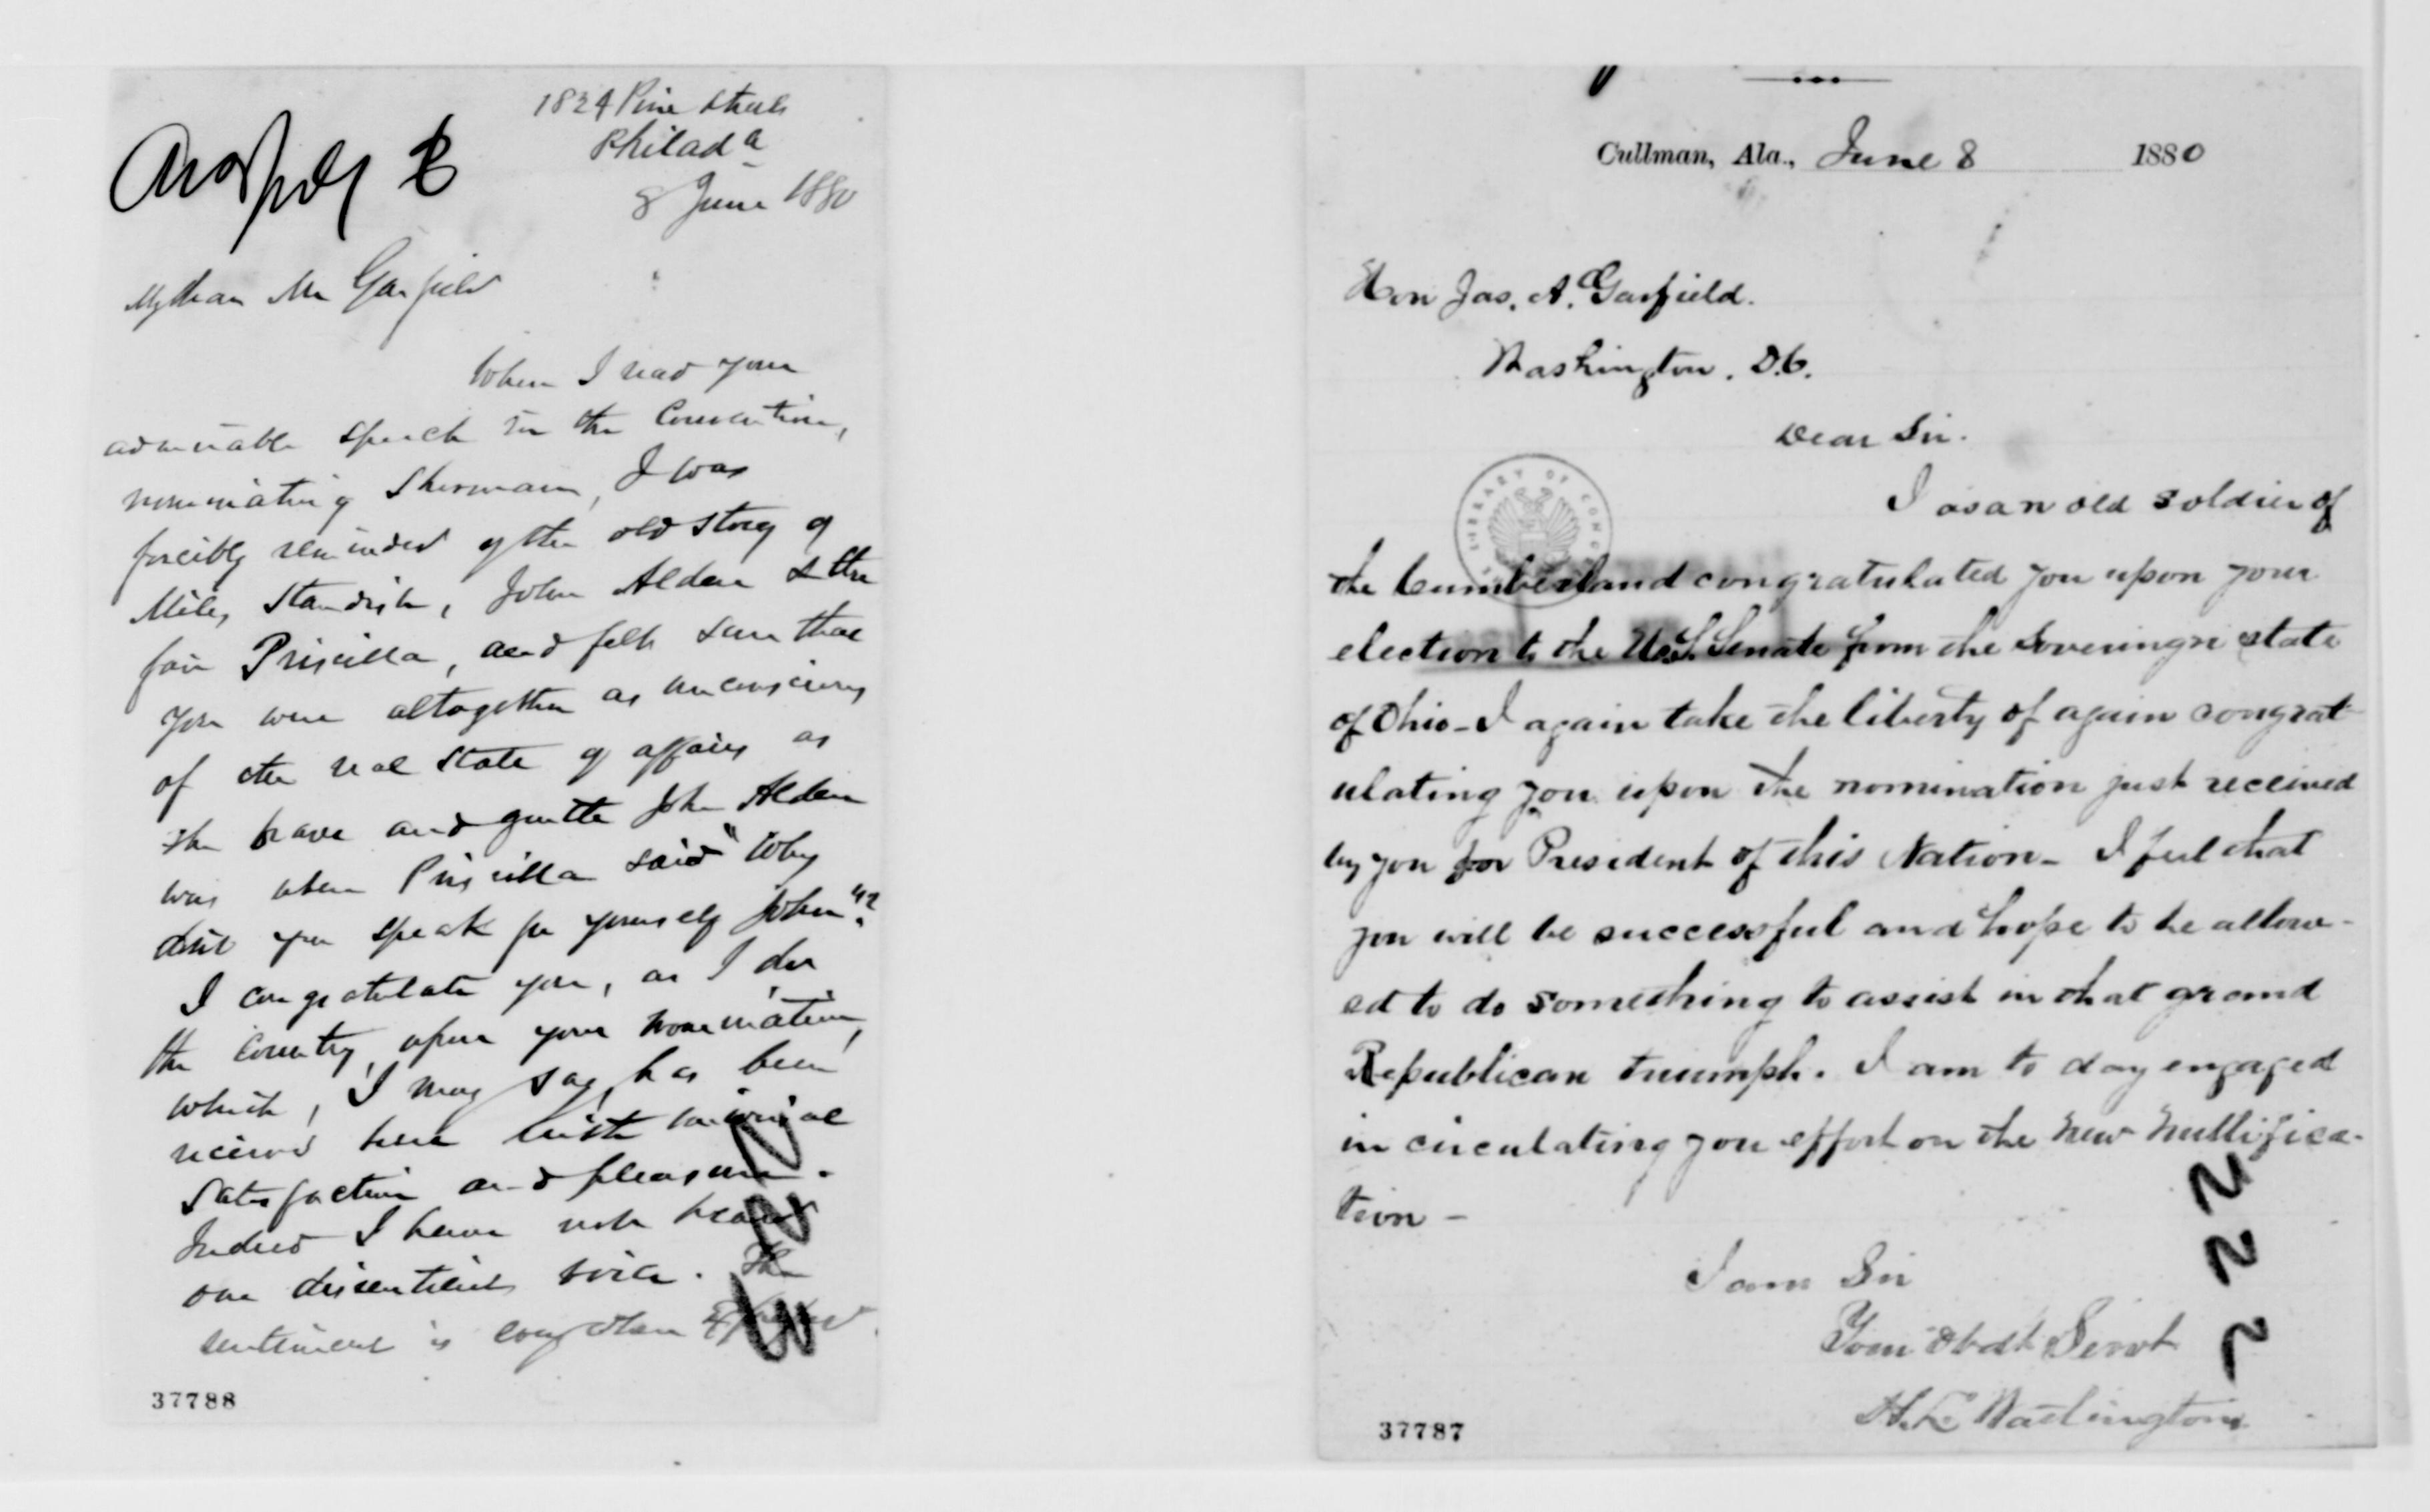 1824 Pine Street
Philada
8 June 1880
My dear Mr Garfield
When I read your
admirable speech in the Convention,
nominating Sherman, I was
forcibly reminded of the old story of
Miles Standish, John Alden & the
fair Priscilla, and felt sure that
you were altogether as unconscious
of the real state of affairs as
the brave and gentle John Alden
was when Priscilla said "Why
dont you speak for yourself John"?
I congratulate you, as I do
the Country, upon your nomination,
which, I may say, has been
received here with universal
satisfaction and pleasure.
Indeed I have not heard
one dissentient voice. The
sentiment is
37788
Cullman, Ala., June 8 1880
Hon Jas. A. Garfield.
Washington. D.C.
Dear Sir.
LIBRARY OF CONG
I as an old soldier of
the Cumberland congratulated you upon your
election to the U.S. Senate from the Soveringn state
of Ohio - I again take the liberty of again congrat
ulating you upon the nomination just received
by you for President of this Nation - I feel that
you will be successful and hope to be allow-
ed to do something to assist in that grand
Republican triumph. I am to day engaged
in circulating you effort on the new nullifica-
tion -
I am Sir
Your Obdt Servt
Washington
222
37787